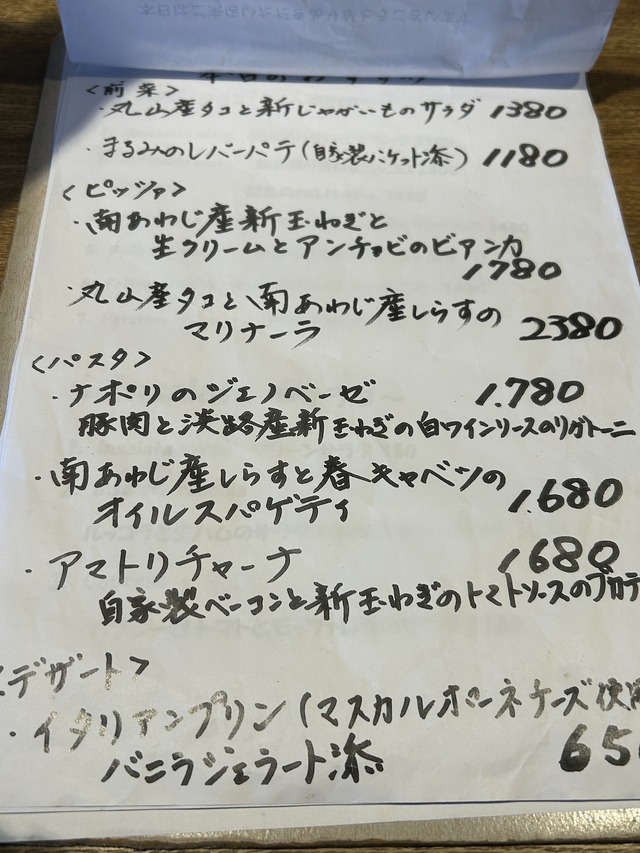 本日のおすすめ
＜前菜＞
・丸山産タコと新じゃがいものサラダ 1380
・まるみのレバーパテ(自家製バケット添) 1180
＜ピッツァ＞
・南あわじ産新玉ねぎと
生クリームとアンチョビのビアンカ
1780
・丸山産タコと南あわじ産しらすの
マリナーラ 2380
＜パスタ＞
・ナポリのジェノベーゼ 1.780
豚肉と淡路産新玉ねぎの白ワインソースのリガトーニ
・南あわじ産しらすと春キャベツの
オイルスパゲティ 1.680
・アマトリチャーナ 1680
自家製ベーコンと新玉ねぎのトマトソースのブカテ
＜デザート＞
・イタリアンプリン(マスカルポーネチーズ使用
バニラジェラート添 650